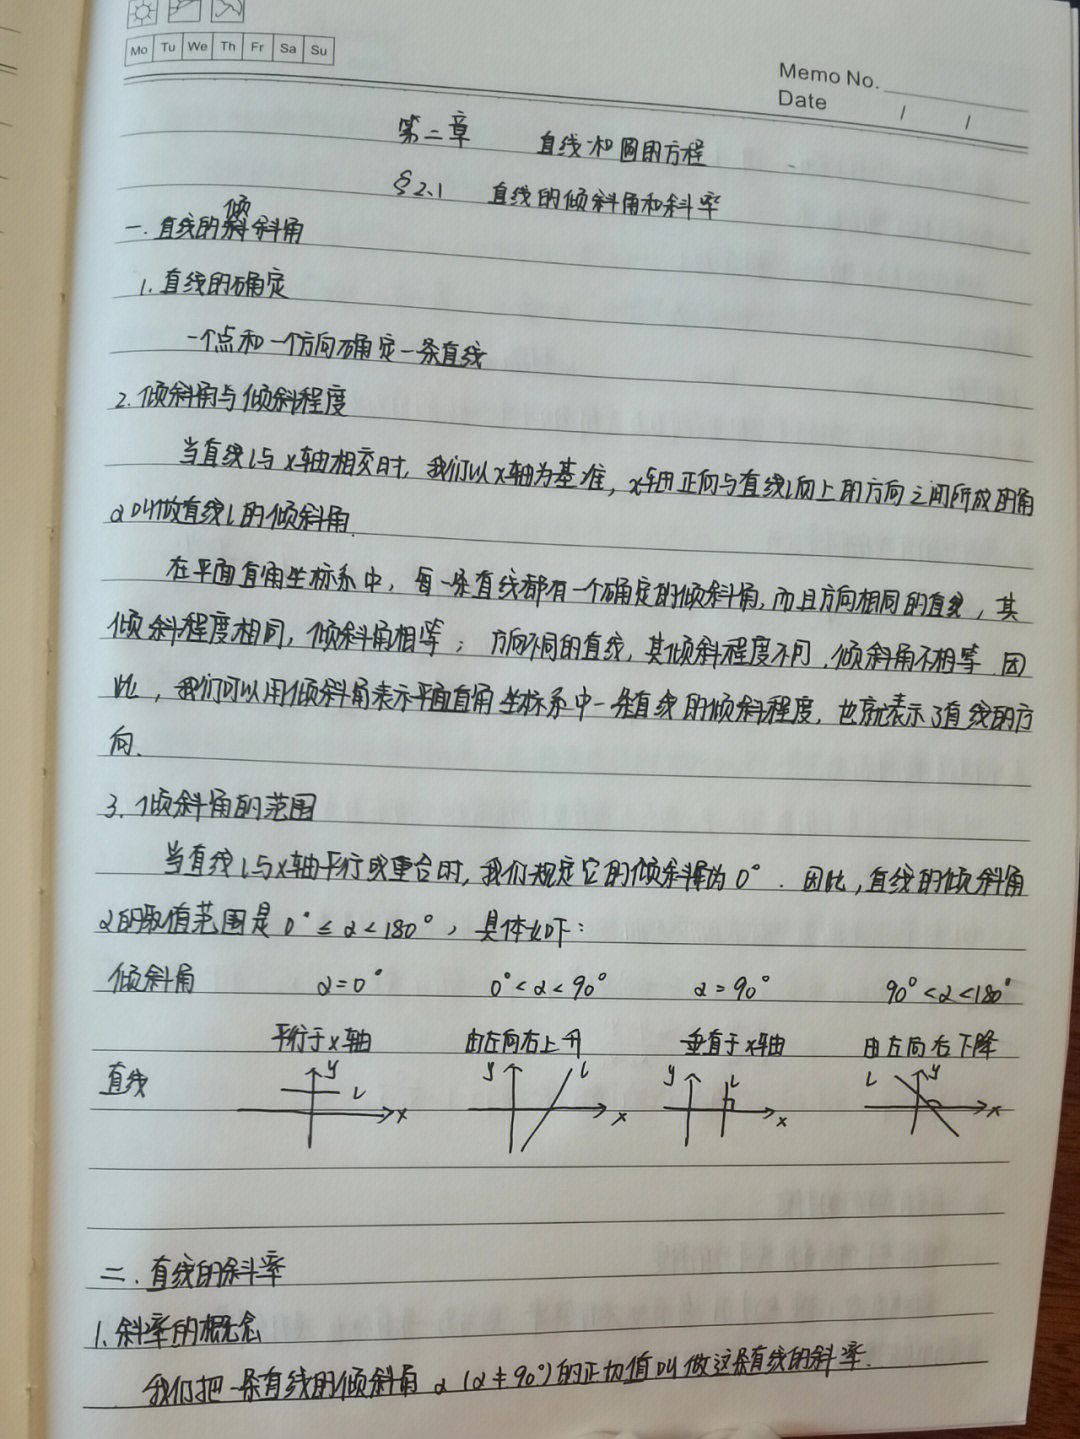 Mo Tu We Th Fr Sa Su
Memo No.
Date / /
第二章 直线和圆的方程
§2.1 直线的倾斜角和斜率
倾
一.直线的斜斜角
1.直线的确定
一个点和一个方向确定一条直线
2.倾斜角与倾斜程度
当直线l与x轴相交时,我们以x轴为基准,x轴正向与直线l向上的方向之间所成的角
α叫做直线l的倾斜角.
在平面直角坐标系中,每一条直线都有一个确定的倾斜角,而且方向相同的直线,其
倾斜程度相同,倾斜角相等;方向不同的直线,其倾斜程度不同,倾斜角不相等.因
此,我们可以用倾斜角表示平面直角坐标系中一条直线的倾斜程度,也就表示了直线的方
向.
3.倾斜角的范围
当直线l与x轴平行或重合时,我们规定它的倾斜角为0°.因此,直线的倾斜角
α的取值范围是0°≤α<180°,具体如下:
倾斜角 α=0° 0°<α<90° α=90° 90°<α<180°
平行于x轴 由左向右上升 垂直于x轴 由左向右下降
直线 y l x y l x y l x l y x
二.直线的斜率
1.斜率的概念
我们把一条直线的倾斜角α(α≠90°)的正切值叫做这条直线的斜率.